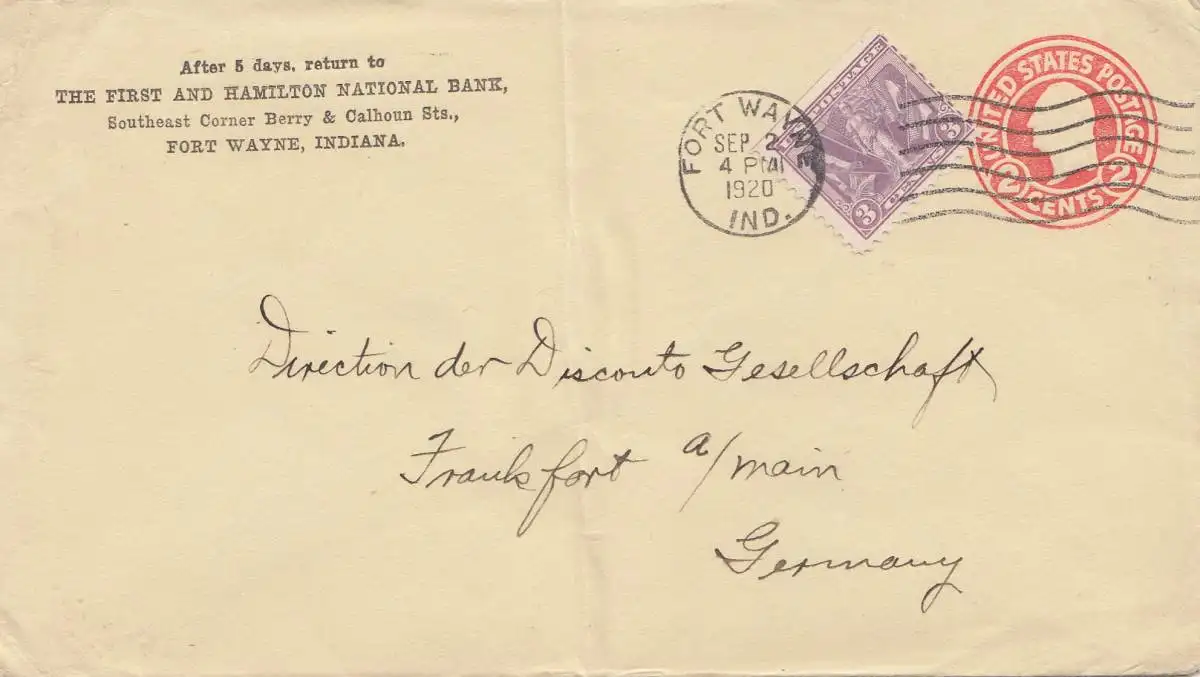 After 5 days, return to
THE FIRST AND HAMILTON NATIONAL BANK,
Southeast Corner Berry & Calhoun Sts.,
FORT WAYNE, INDIANA.
FORT WAYNE
SEP 2
4 PM
1920
IND.
POSTAGE
3 CENTS 3
UNITED STATES POSTAGE
2 CENTS 2
Direction der Disconto Gesellschaft
Frankfort a/main
Germany